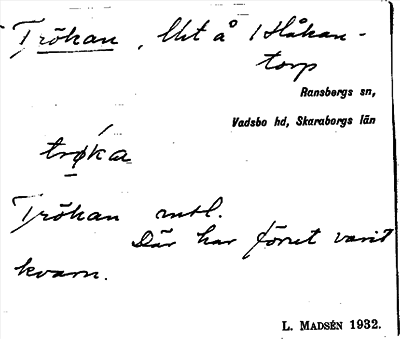 Trökan, Utå 1 Håkan-
torp
Ransbergs sn,
Vadsbo hd, Skaraborgs län
trøka
Trökan mtl.
Där har förut varit
kvarn.
L. MADSÉN 1932.